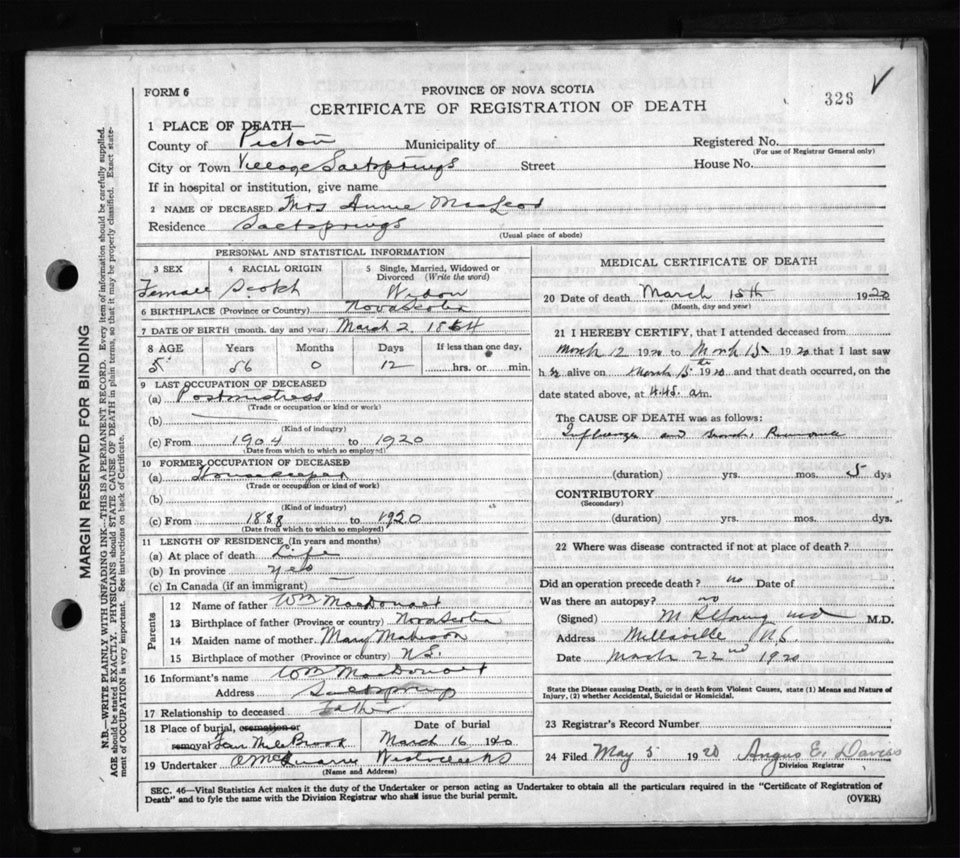 FORM 6
PROVINCE OF NOVA SCOTIA
CERTIFICATE OF REGISTRATION OF DEATH
326
1 PLACE OF DEATH—
County of Pictou Municipality of Registered No.
(For use of Registrar General only)
City or Town Village Saltsprings Street House No.
If in hospital or institution, give name
2 NAME OF DECEASED Mrs Annie MacLeod
Residence Saltsprings
(Usual place of abode)
PERSONAL AND STATISTICAL INFORMATION
3 SEX 4 RACIAL ORIGIN 5 Single, Married, Widowed or Divorced (Write the word)
Female Scotch Widow
6 BIRTHPLACE (Province or Country) Nova Scotia
7 DATE OF BIRTH (month, day and year) March 2, 1864
8 AGE Years Months Days If less than one day,
5 56 0 12 hrs. or min.
9 LAST OCCUPATION OF DECEASED
(a) Postmistress
(Trade or occupation or kind or work)
(b)
(Kind of industry)
(c) From 1904 to 1920
(Date from which to which so employed)
10 FORMER OCCUPATION OF DECEASED
(a) Housekeeper
(Trade or occupation or kind of work)
(b)
(Kind of industry)
(c) From 1888 to 1920
(Date from which to which so employed)
11 LENGTH OF RESIDENCE (In years and months)
(a) At place of death Life
(b) In province yes
(c) In Canada (if an immigrant) —
Parents
12 Name of father Wm MacDonald
13 Birthplace of father (Province or country) Nova Scotia
14 Maiden name of mother Mary
15 Birthplace of mother (Province or country) N.S.
16 Informant's name Wm MacDonald
Address Saltsprings
17 Relationship to deceased Father
18 Place of burial, cremation or removal Date of burial
Four Mile Brook March 16 1920
19 Undertaker
(Name and Address)
MEDICAL CERTIFICATE OF DEATH
20 Date of death March 15th 1920
(Month, day and year)
21 I HEREBY CERTIFY, that I attended deceased from
March 12 1920 to March 15 1920 that I last saw
h er alive on March 15th 1920 and that death occurred, on the
date stated above, at 4.45 a.m.
The CAUSE OF DEATH was as follows:
Influenza and Pneumonia
(duration) yrs. mos. 5 dys
CONTRIBUTORY
(Secondary)
(duration) yrs. mos. dys.
22 Where was disease contracted if not at place of death?
Did an operation precede death? no Date of
Was there an autopsy? no
(Signed) M R Young md M.D.
Address Millsville N.S.
Date March 22nd 1920
State the Disease causing Death, or in death from Violent Causes, state (1) Means and Nature of
Injury, (2) whether Accidental, Suicidal or Homicidal.
23 Registrar's Record Number
24 Filed May 5 1920 Angus E. Davies
Division Registrar
SEC. 46—Vital Statistics Act makes it the duty of the Undertaker or person acting as Undertaker to obtain all the particulars required in the "Certificate of Registration of
Death" and to fyle the same with the Division Registrar who shall issue the burial permit.
(OVER)
MARGIN RESERVED FOR BINDING
N.B.—WRITE PLAINLY WITH UNFADING INK—THIS IS A PERMANENT RECORD. Every item of information should be carefully supplied.
AGE should be stated EXACTLY. PHYSICIANS should STATE CAUSE OF DEATH in plain terms, so that it may be properly classified. Exact state-
ment of OCCUPATION is very important. See instructions on back of Certificate.